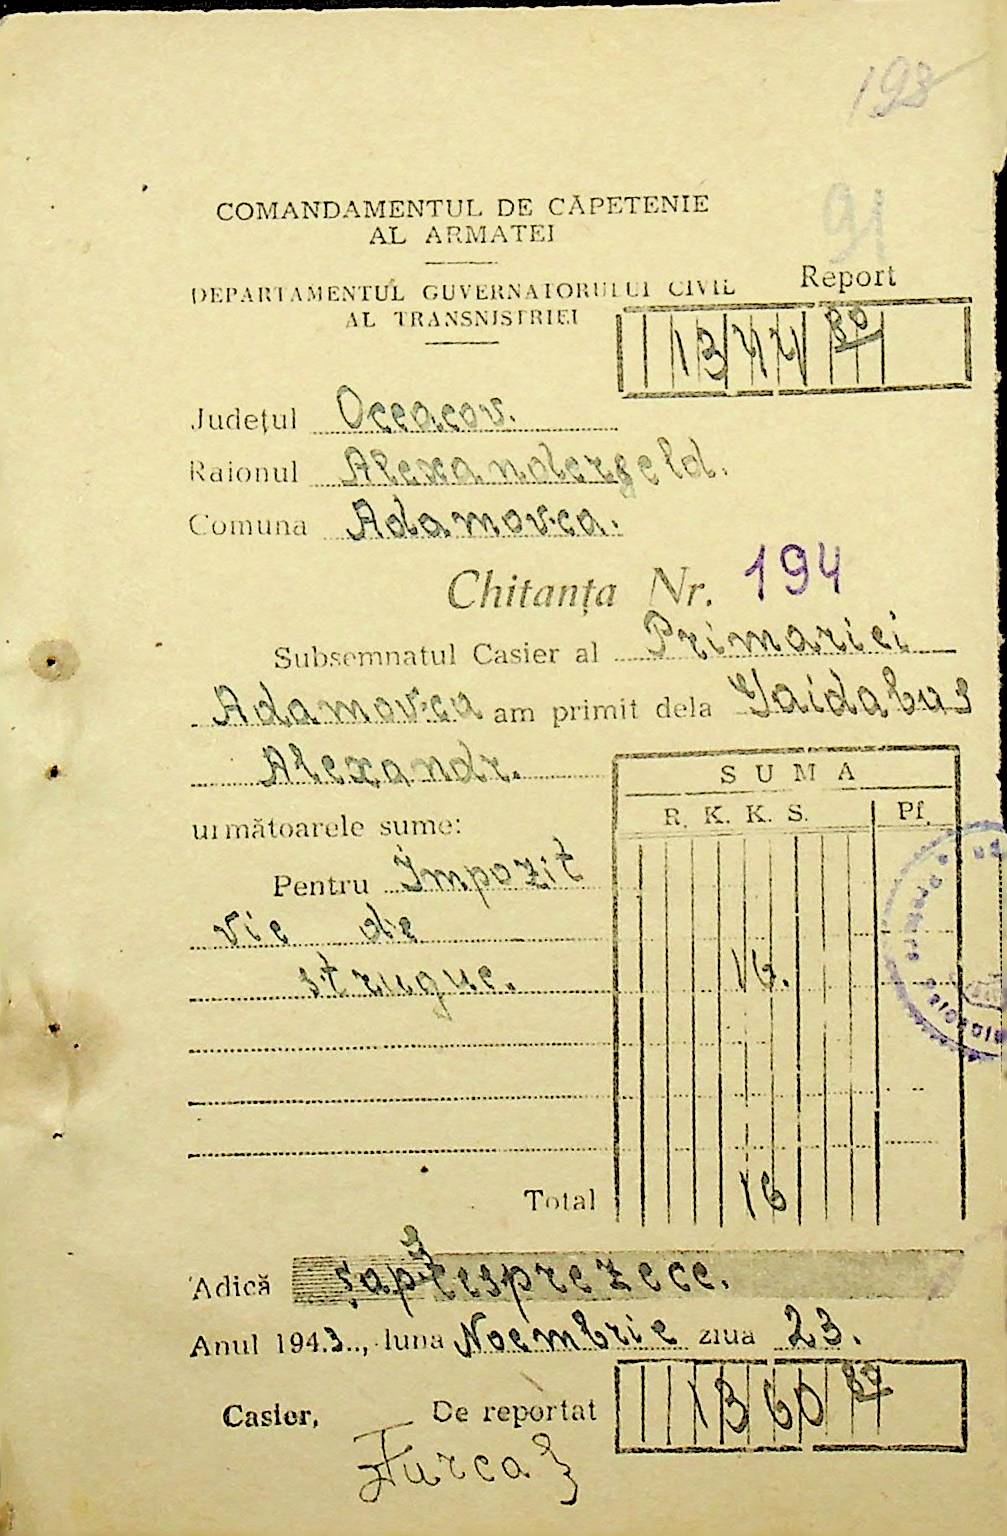 198
91
COMANDAMENTUL DE CĂPETENIE
AL ARMATEI
DEPARTAMENTUL GUVERNATORULUI CIVIL
AL TRANSNISTRIEI
Report
1344 80
Județul Oceacov.
Raionul Alexandergeld.
Comuna Adamovca.
Chitanța Nr. 194
Subsemnatul Casier al Primariei
Adamovca am primit dela Gaidabus
Alexandr.
următoarele sume:
SUMA
R. K. K. S. Pf.
Pentru Impozit
vie de
strugue. 16.
Total 16
Adică șaptesprezece.
Anul 1943.., luna Noembrie ziua 23.
Casier, De reportat 1360
Turca